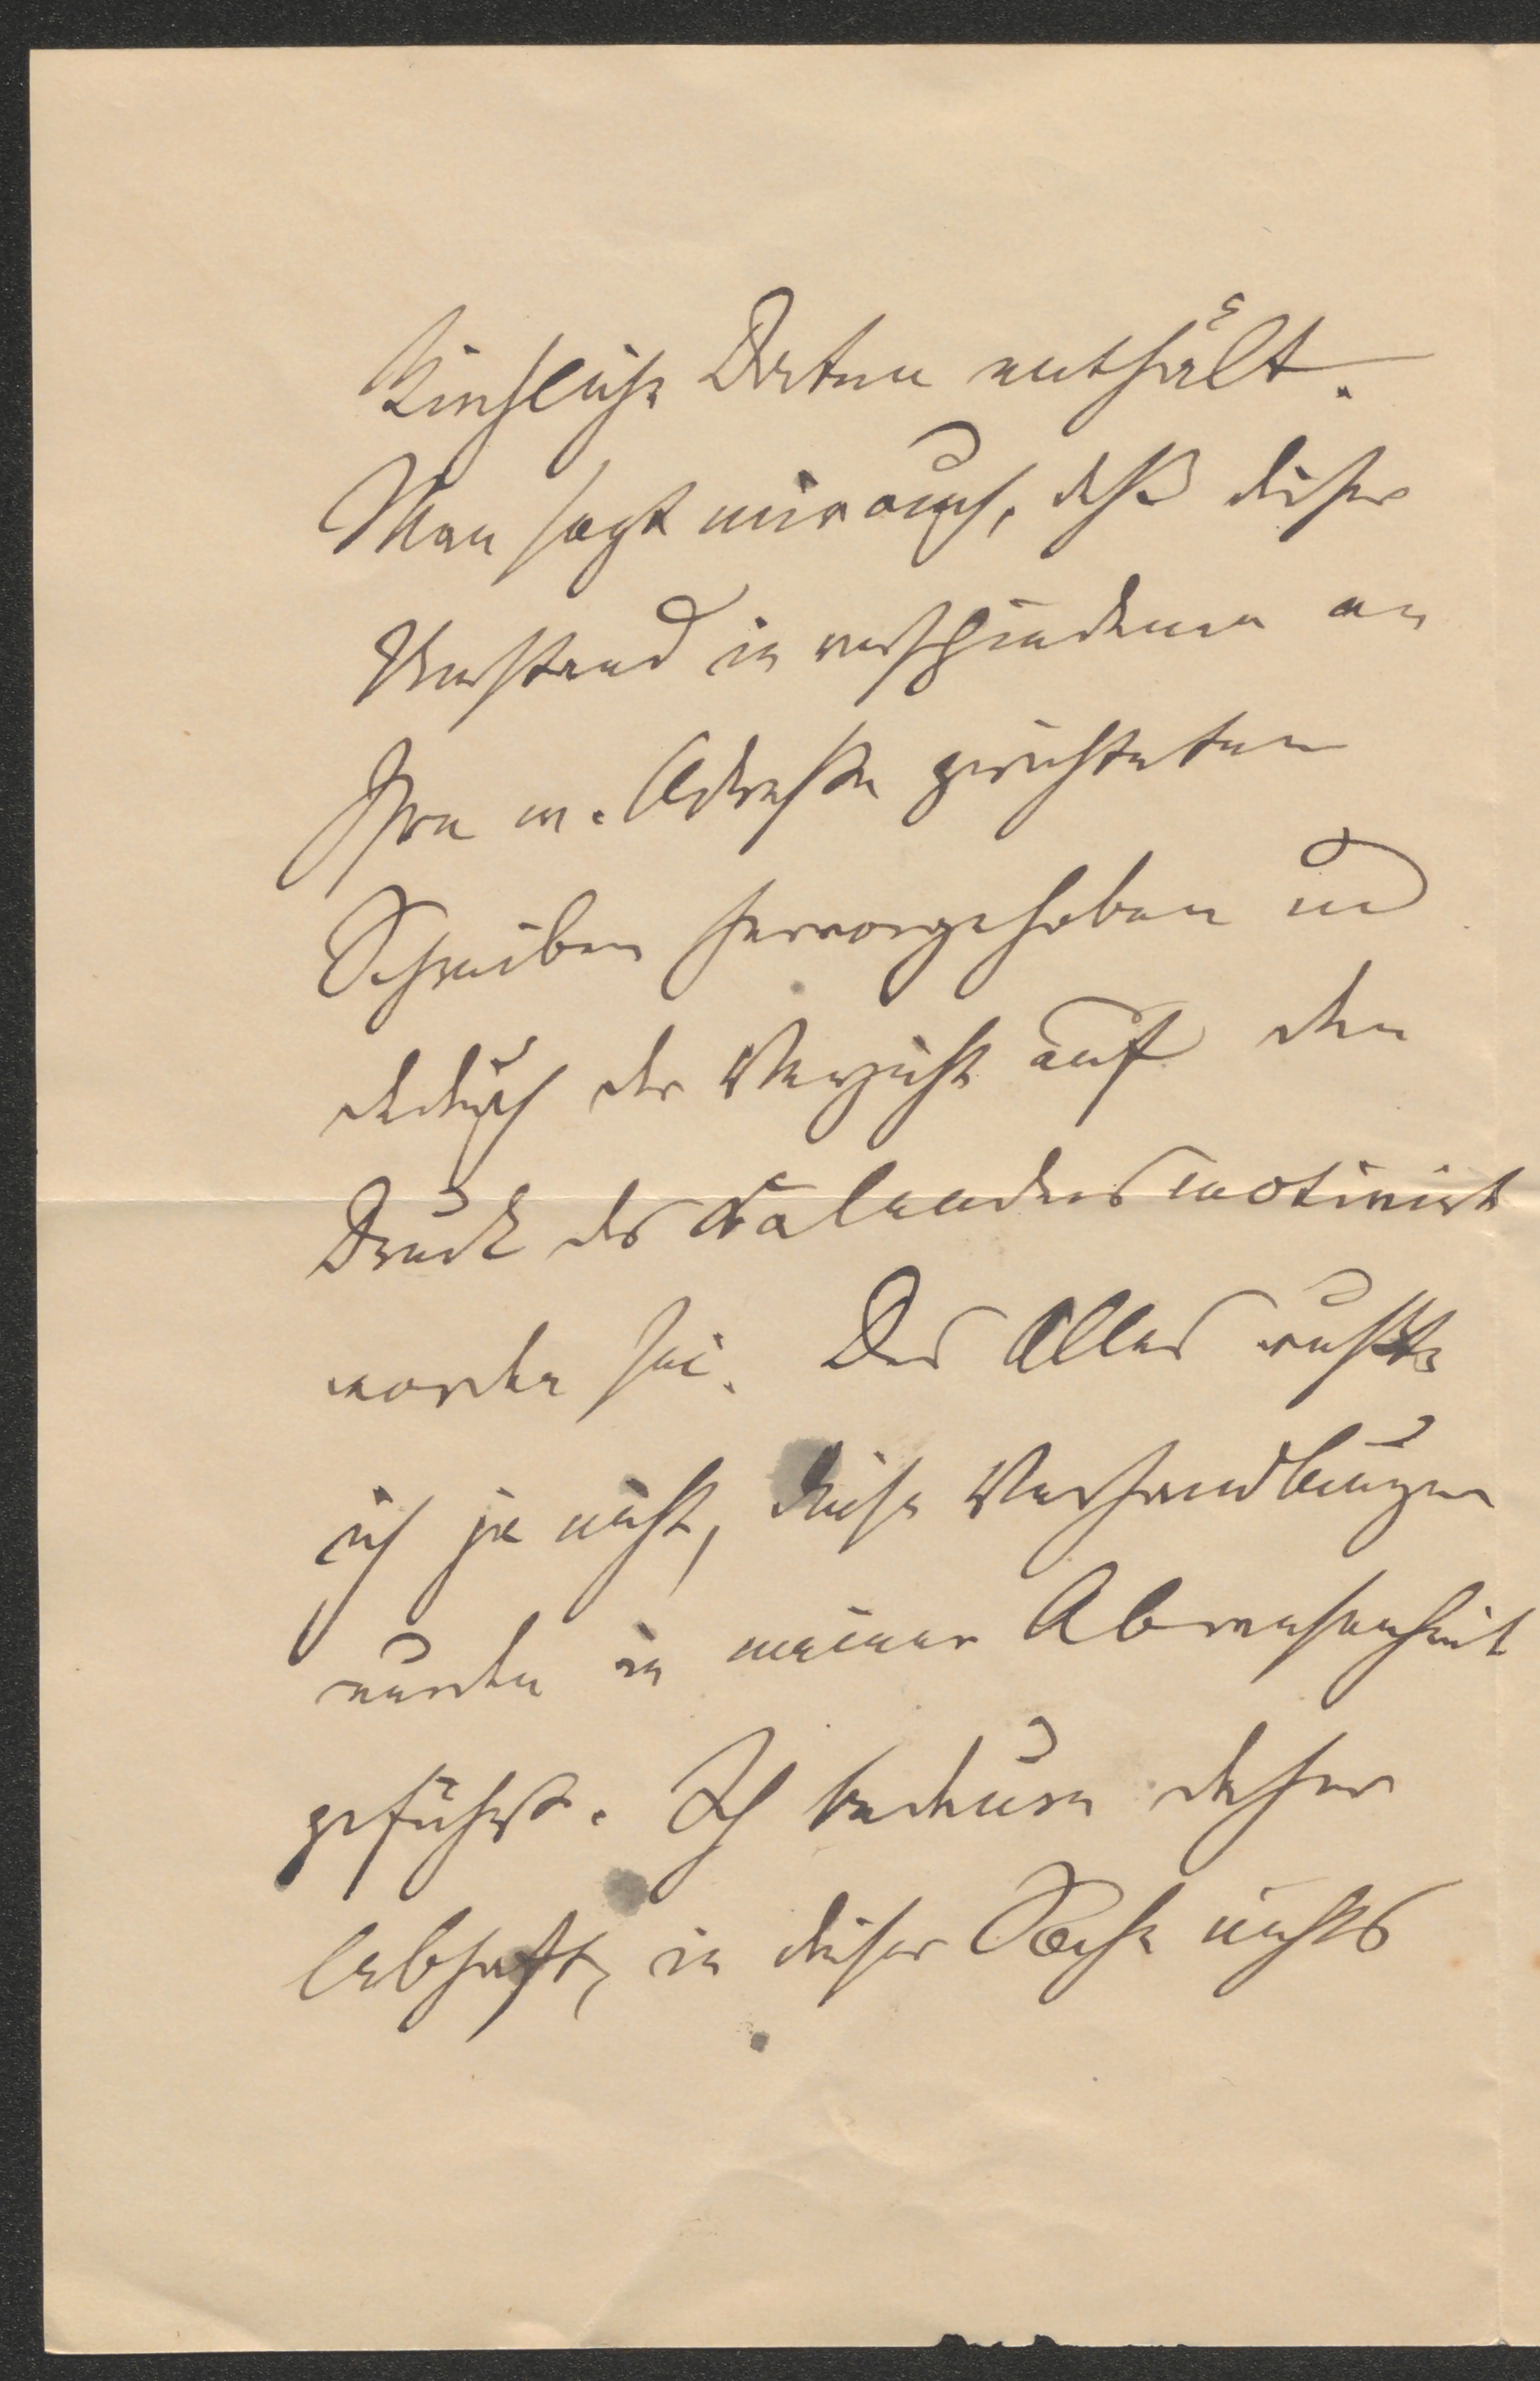 kirchliche Daten enthält.
Man sagt mir auch, daß dieser
Umstand in verschiedenen an
Ihre w. Adresse gerichteten
Schreiben hervorgehoben und
dadurch der Verzicht auf den
Druck des Kalenders motivirt
worden sei. Das Alles wußte
ich ja nicht, diese Verhandlungen
wurden in meiner Abwesenheit
geführt. Ich bedaure daher
lebhaft, in dieser Sache nichts